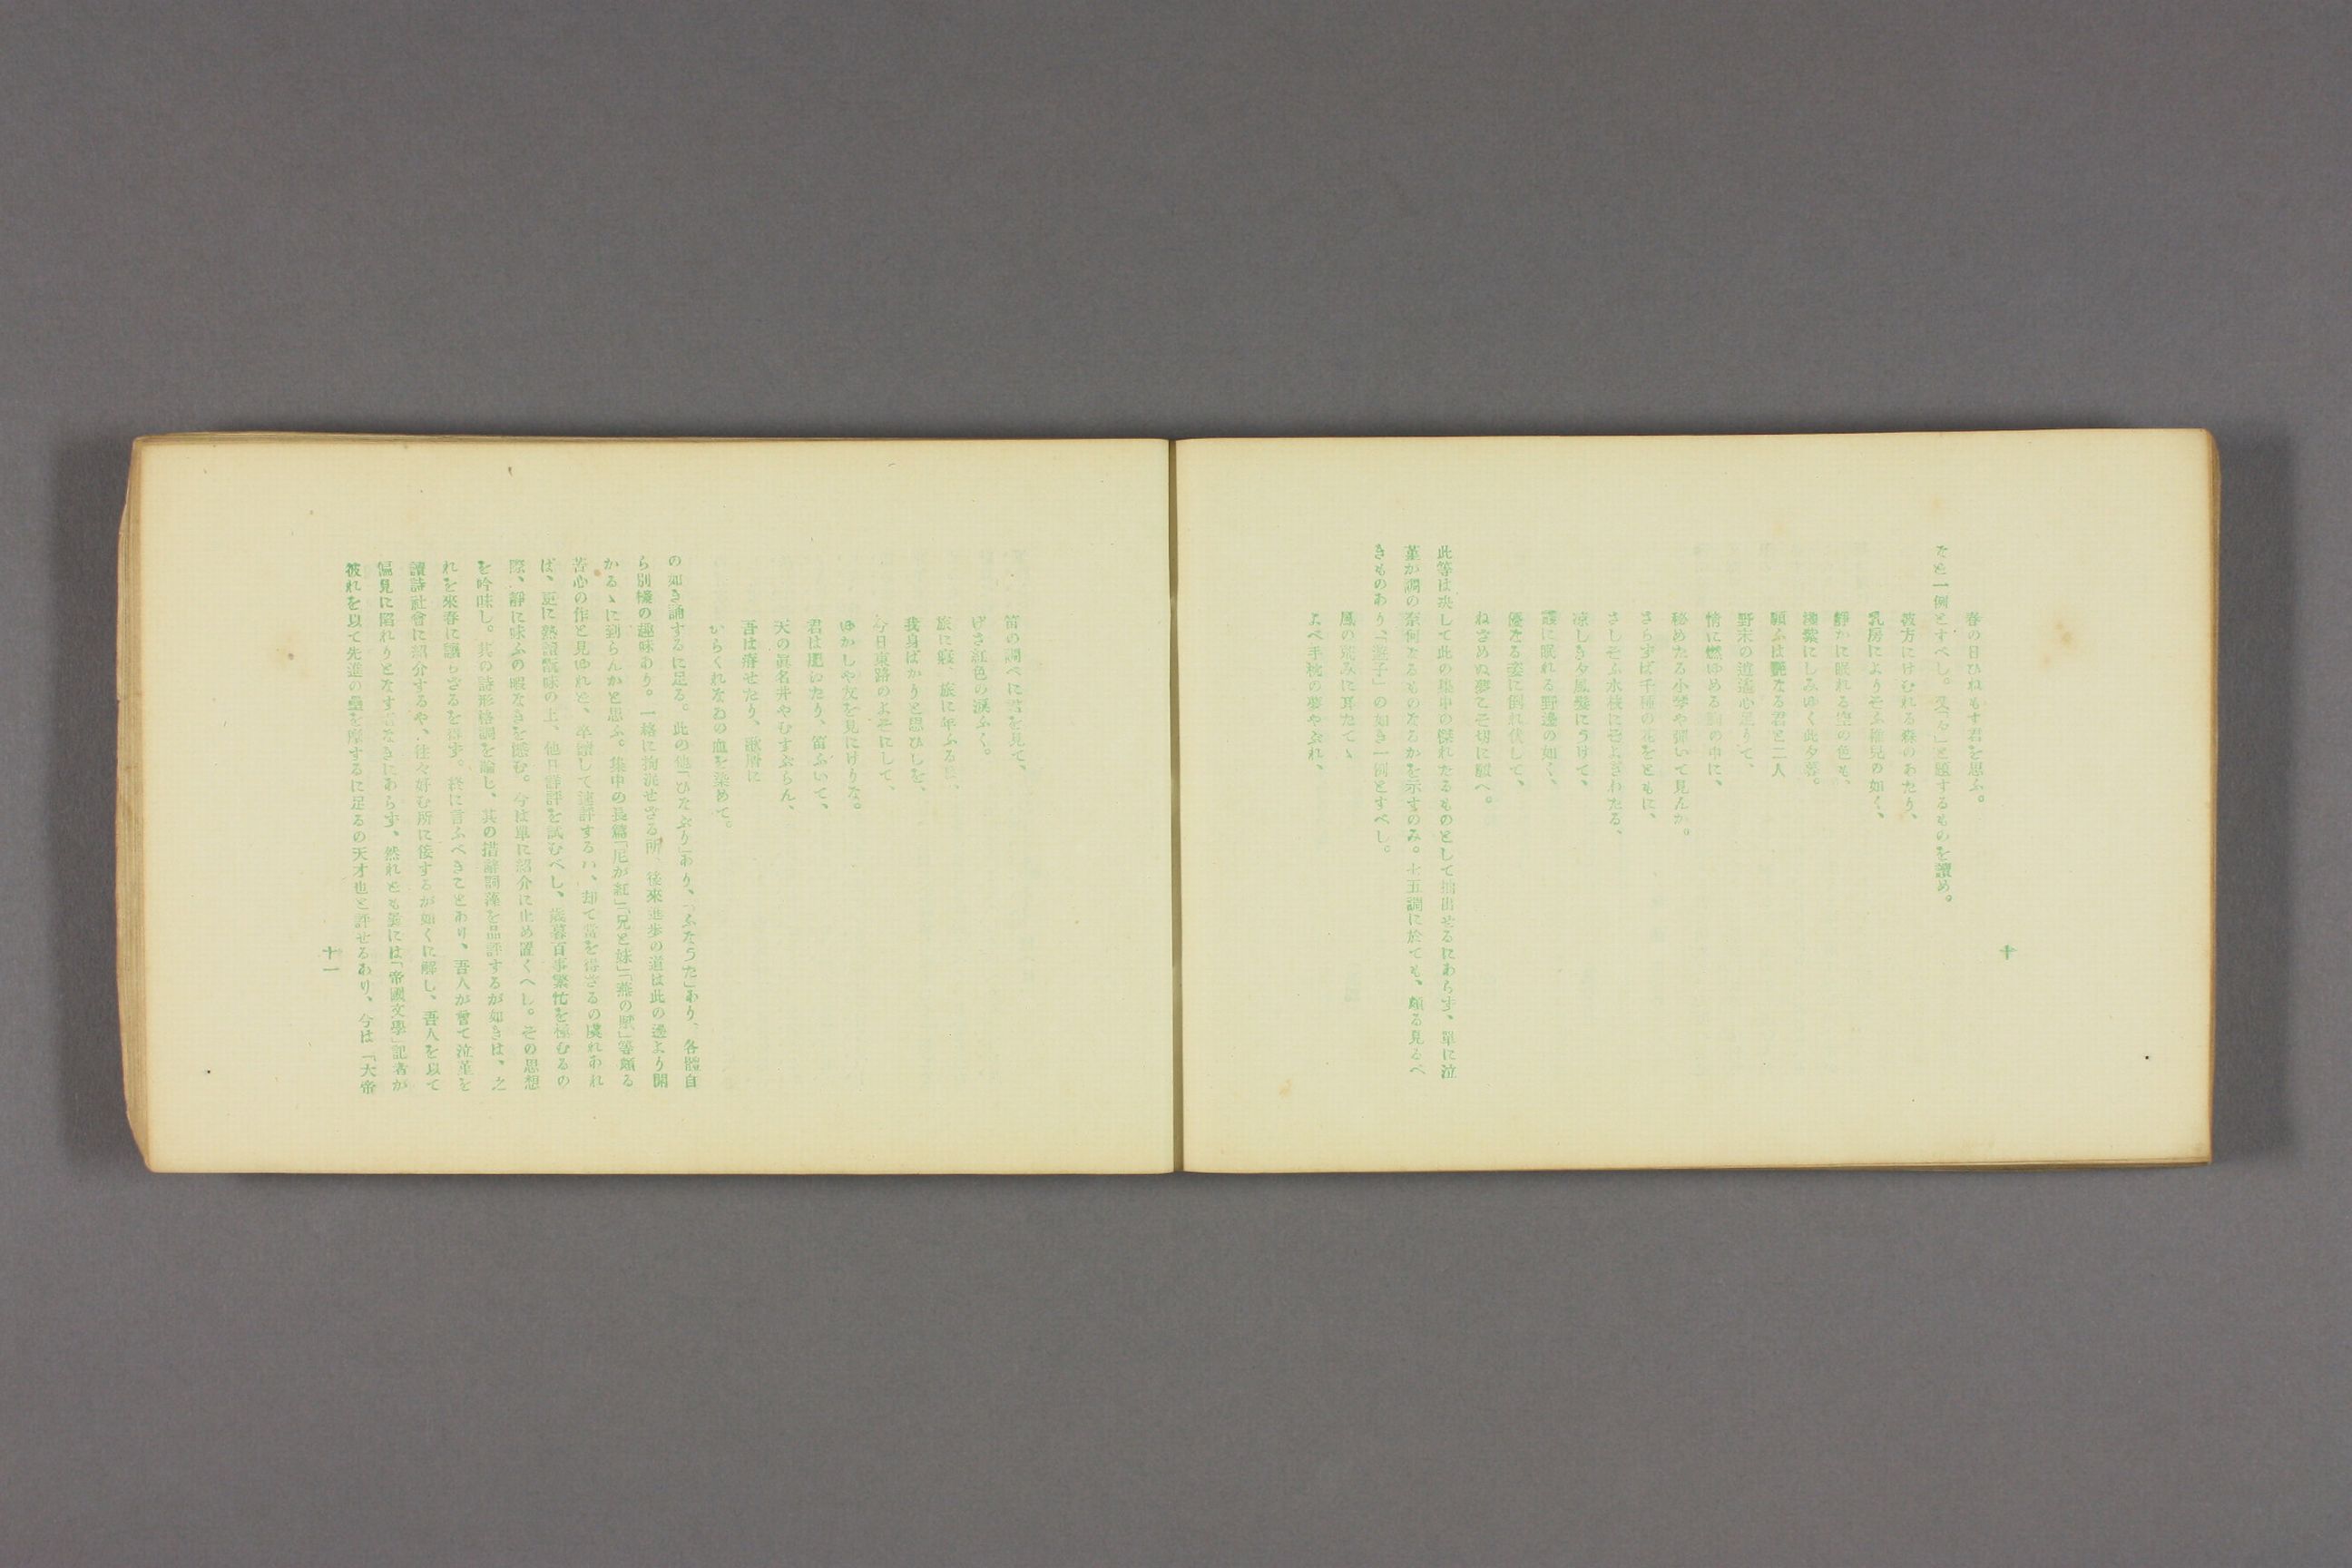 十
春の日ひねもす君を思ふ。
など一例とすべし。又と題するものを讀め。
彼方にけむれる森のあたり、
乳房によりそふ稚兒の如く、
靜かに眠れる空の色も、
淺紫にしみゆく此夕暮。
願ふは艶なる君と二人
野末の逍遙心足りて、
情に燃ゆめる胸の中に、
秘めたる小琴や彈いて見んか。
さらずば千種の花をともに、
さしそふ水枝にそよぎわたる、
凉しき夕風髮にうけて、
叢に眠れる野邊の如く、
優なる姿に倒れ伏して、
ねざめぬ夢こそ切に願へ。
此等は决して此の集中の傑れたるものとして抽出せるにあらず、單に泣
菫が調の奈何なるものなるかを示すのみ。七五調に於ても、頗る見るべ
きものあり、「遊子」の如き一例とすべし。
風の荒みに耳たてゝ
たべ手枕の夢やぶれ、
笛の調べに君を見て、
げさ紅色の涙ふく。
旅に寢、旅に年ふる
我身ばかりと思ひしを、
今日東路のよそにして、
ゆかしや友を見にけりな。
君は肥いたり、笛ふいて、
天の眞名井やむすぶらん、
吾は瘠せたり、歌屑に
いらくれなゐの血を染めて。
の如き誦するに足る。此の他「ひなぶり」あり、「ふなうた」あり、各體自
ら別樣の趣味あり。一格に拘泥せざる所、後來進歩の道は此の邊より開
かるゝに到らんかと思ふ。集中の長篇「尼が紅」「兄と妹」「燕の賦」等頗る
苦心の作と見ゆれど、卒讀して速評するハ、却て當を得ざるの虞れあれ
ば、更に熟讀翫味の上、他日詳評を試むべし、歳暮百事繁忙を極むるの
際、靜に味ふの暇なきを憾む。今は單に紹介に止め置くべし。その思想
を吟味し。其の詩形格調を論じ、其の措辭詞藻を品評するが如きは、之
れを來春に讓らざるを得ず。終に言ふべきことあり、吾人が曾て泣菫を
讀詩社會に紹介するや、往々好む所に倭するが如くに解し、吾人を以て
偏見に陷れりとなす者なきにあらず、然れども曩には「帝國文學」記者が
彼れを以て先進の壘を摩するに足るの天才也と評せるあり、今は「大帝
十一